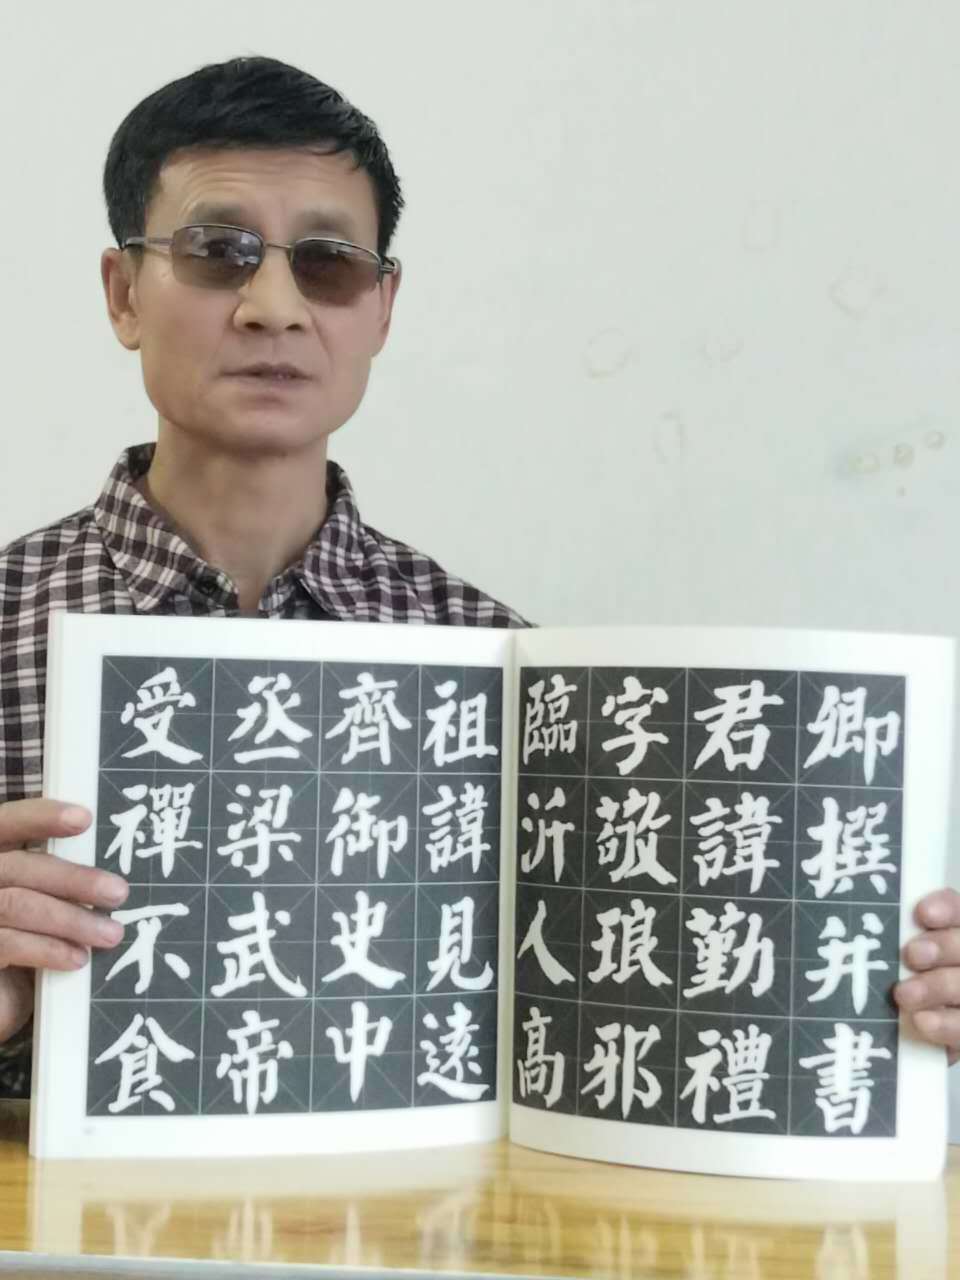 卿撰并書
君諱勤禮
字敬琅邪
臨沂人高
祖諱見遠
齊御史中
丞梁武帝
受禪不食